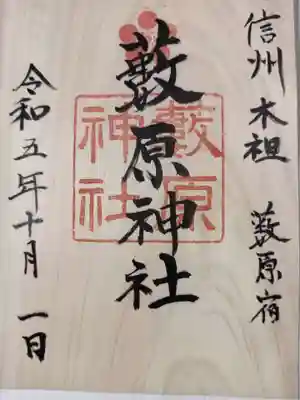 信州 木祖 薮原宿
藪原神社
藪原神社
令和五年十月一日